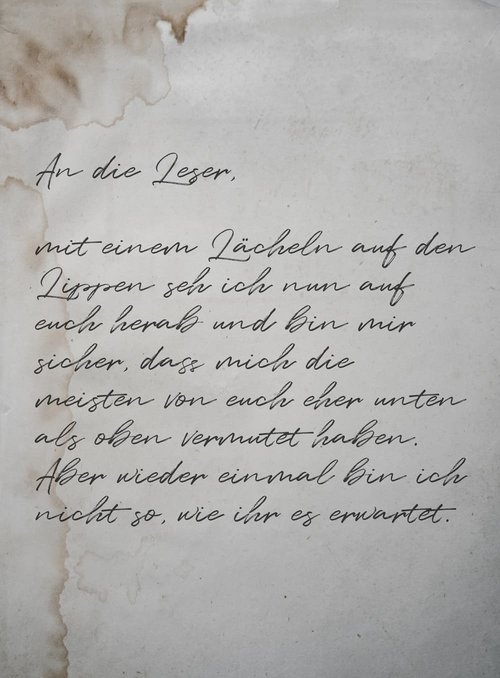 An die Leser,
mit einem Lächeln auf den
Lippen seh ich nun auf
euch herab und bin mir
sicher, dass mich die
meisten von euch eher unten
als oben vermutet haben.
Aber wieder einmal bin ich
nicht so, wie ihr es erwartet.